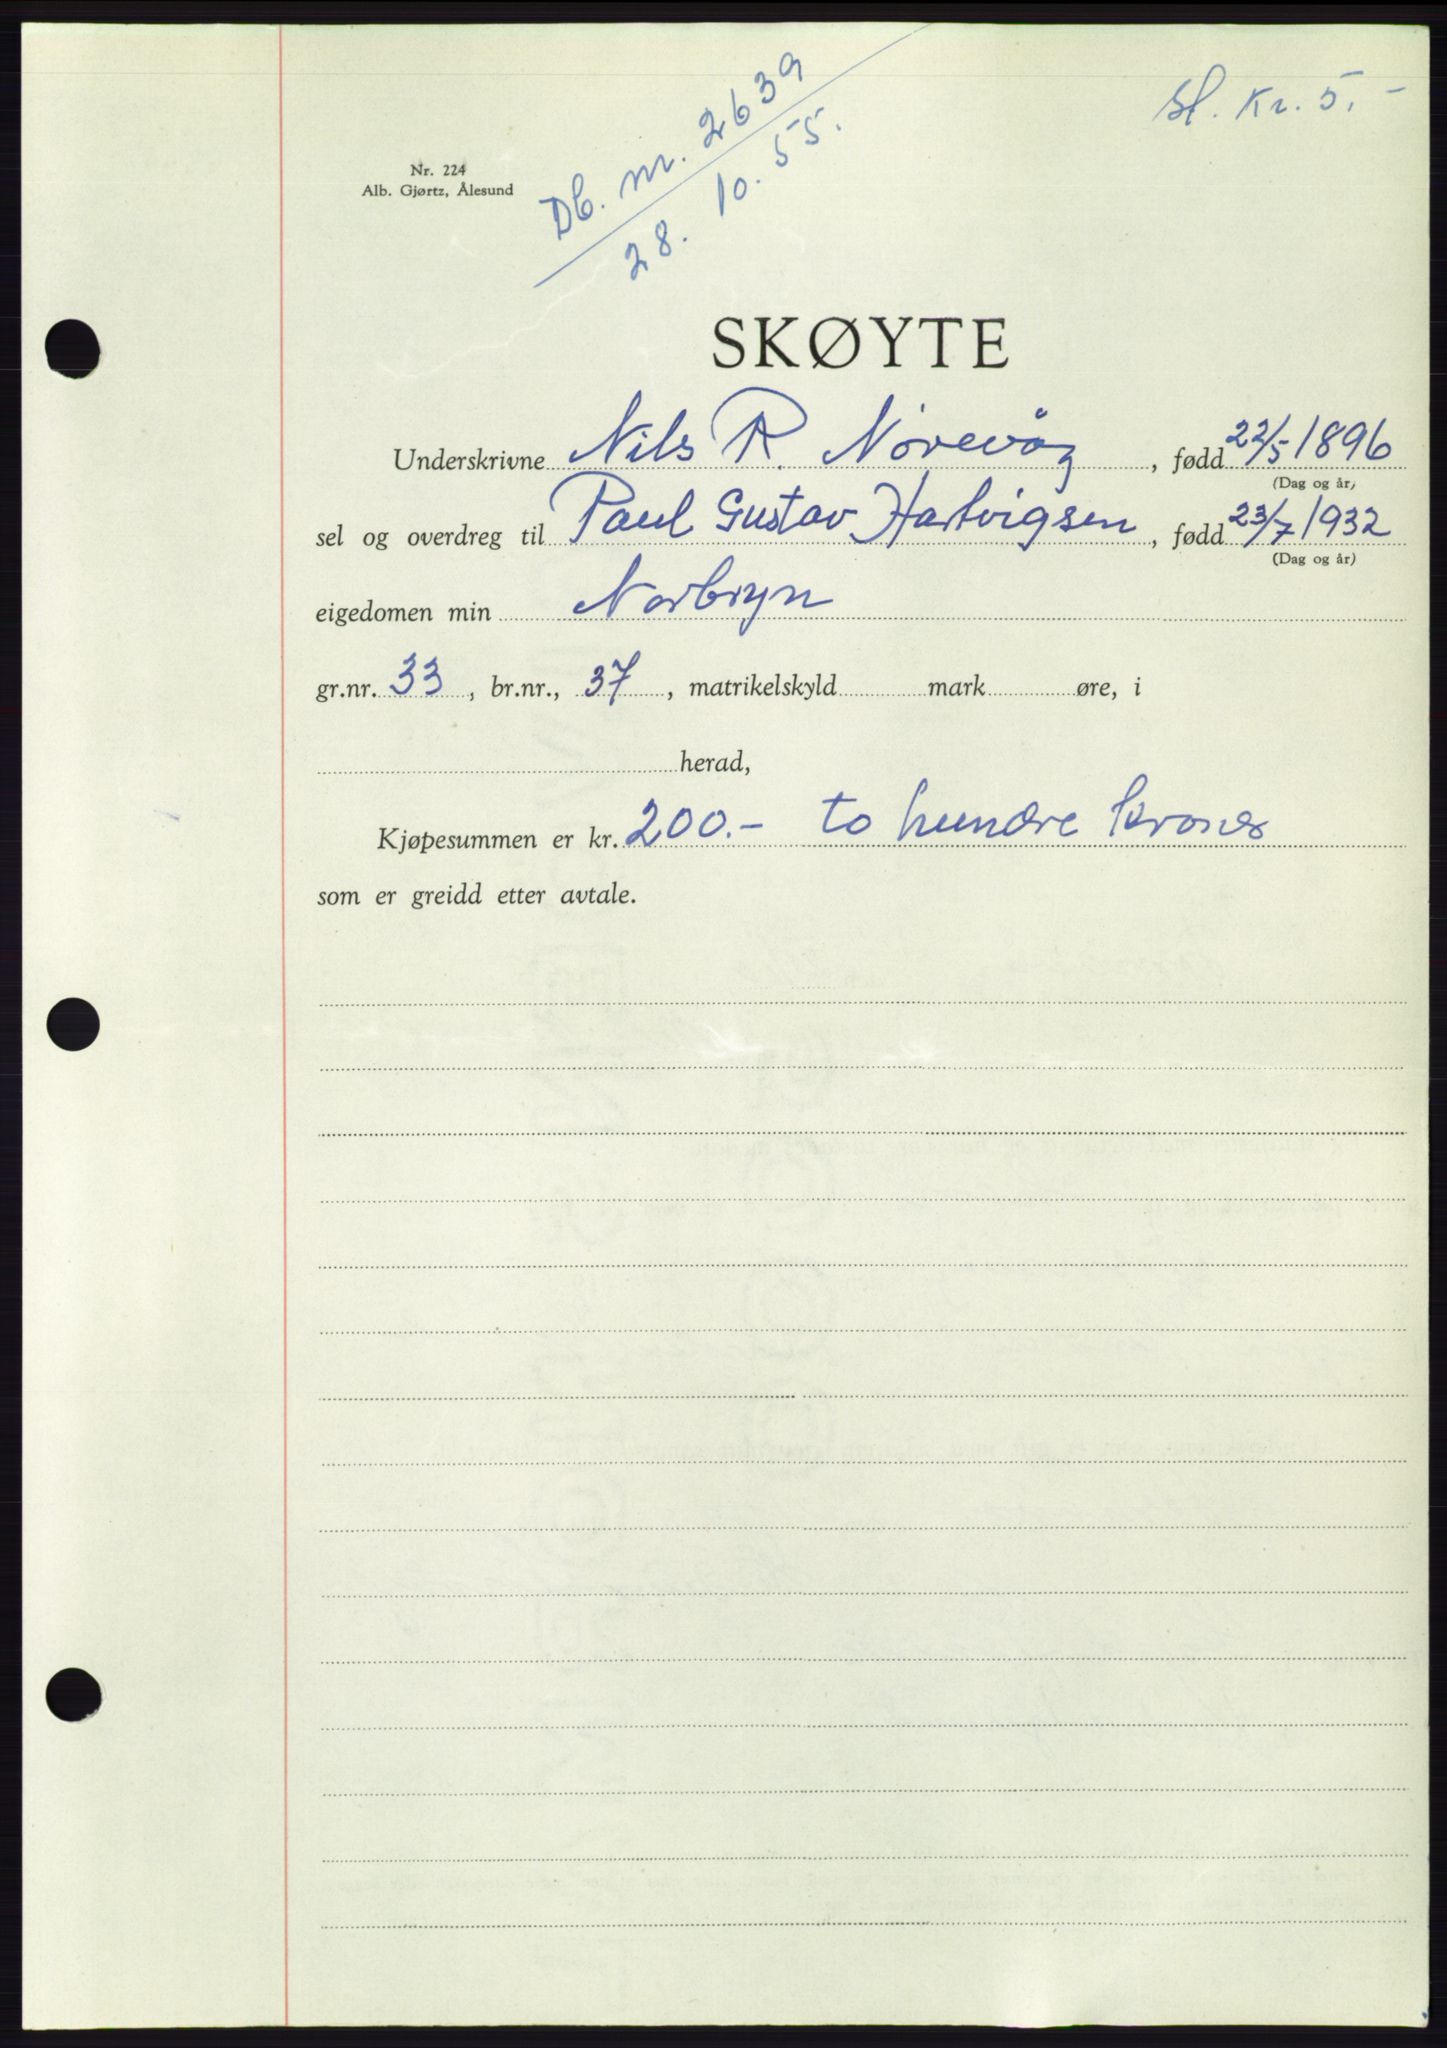 Db. nr. 2639
28. 10. 55.
st. kr. 5.-
Nr. 224
Alb. Gjørtz, Ålesund
SKØYTE
Underskrivne Nils R. Nørevåg, fødd 22/5 1896
(Dag og år)
sel og overdreg til Paul Gustav Hartvigsen, fødd 23/7 1932
(Dag og år)
eigedomen min Norbryn
gr.nr. 33, br.nr., 37, matrikelskyld mark øre, i
herad,
Kjøpesummen er kr. 200.- to hundre kroner
som er greidd etter avtale.